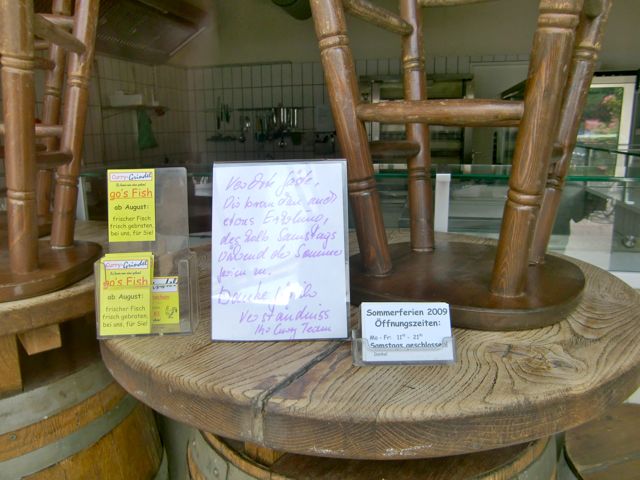 Curry-Grindel
go's Fish
ab August:
frischer Fisch
frisch gebraten,
bei uns, für Sie!
Curry-Grindel
go's Fish
ab August:
frischer Fisch
frisch gebraten,
bei uns, für Sie!
Verehrte Gäste,
Die brauchen auch
etwas Erholung,
deshalb Samstags
während der Sommer
ferien zu.
Danke für Ihr
Verständniss
Ihr Curry Team
Sommerferien 2009
Öffnungszeiten:
Mo - Fr: 11°° - 21°°
Samstags geschlossen
Danke!